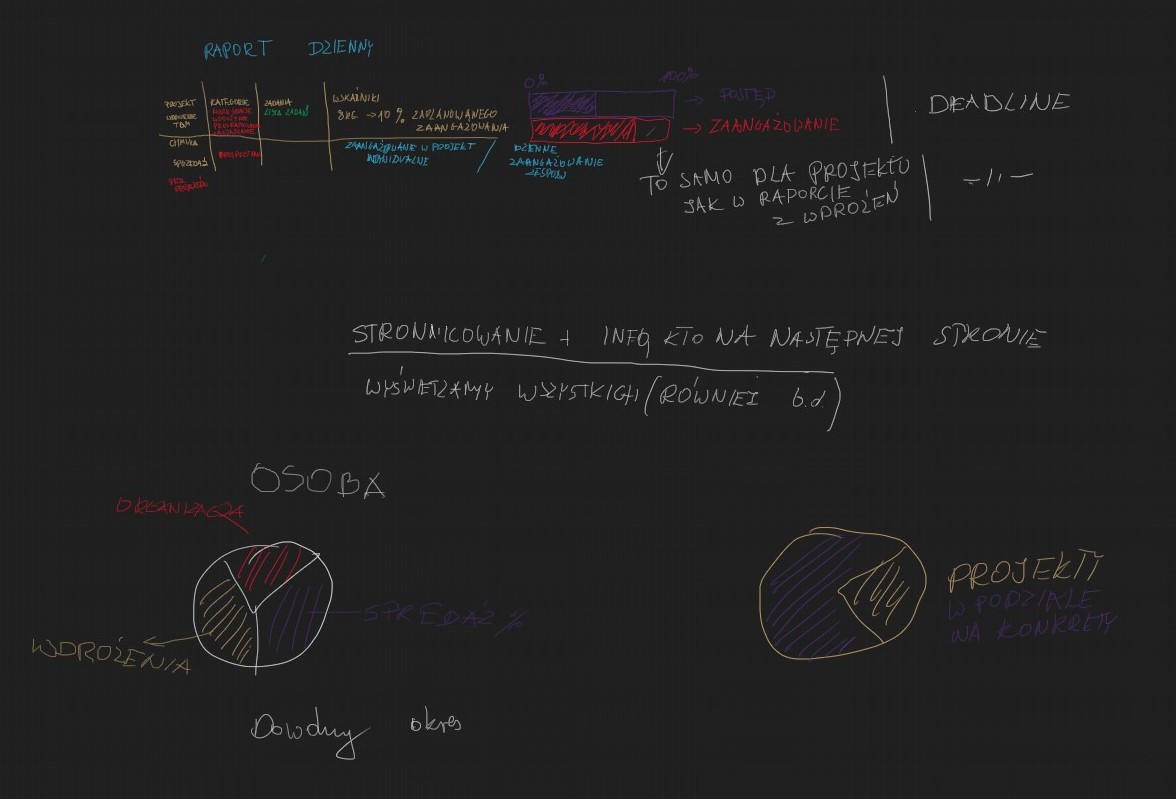 RAPORT DZIENNY
PROJEKT
KATEGORIE
ZADANIA
LISTA ZADAŃ
WSKAŹNIKI
8KG → 10% ZAPLANOWANEGO
ZAANGAŻOWANIA
WDROŻENIE
SPRZEDAŻ
ZAANGAŻOWANIE W PROJEKT
INDYWIDUALNE
/
DZIENNE
ZAANGAŻOWANIE
ZESPOŁU
0% 100%
→ POSTĘP
→ ZAANGAŻOWANIE
DEADLINE
TO SAMO DLA PROJEKTU
JAK W RAPORCIE
Z WDROŻEŃ
-//-
STRONNICOWANIE + INFO KTO NA NASTĘPNEJ STRONIE
WYŚWIETLAMY WSZYSTKICH (RÓWNIEŻ b.d.)
OSOBA
ORGANIZACJA
SPRZEDAŻ %
WDROŻENIA
Dowolny okres
PROJEKTY
W PODZIALE
NA KONKRETY